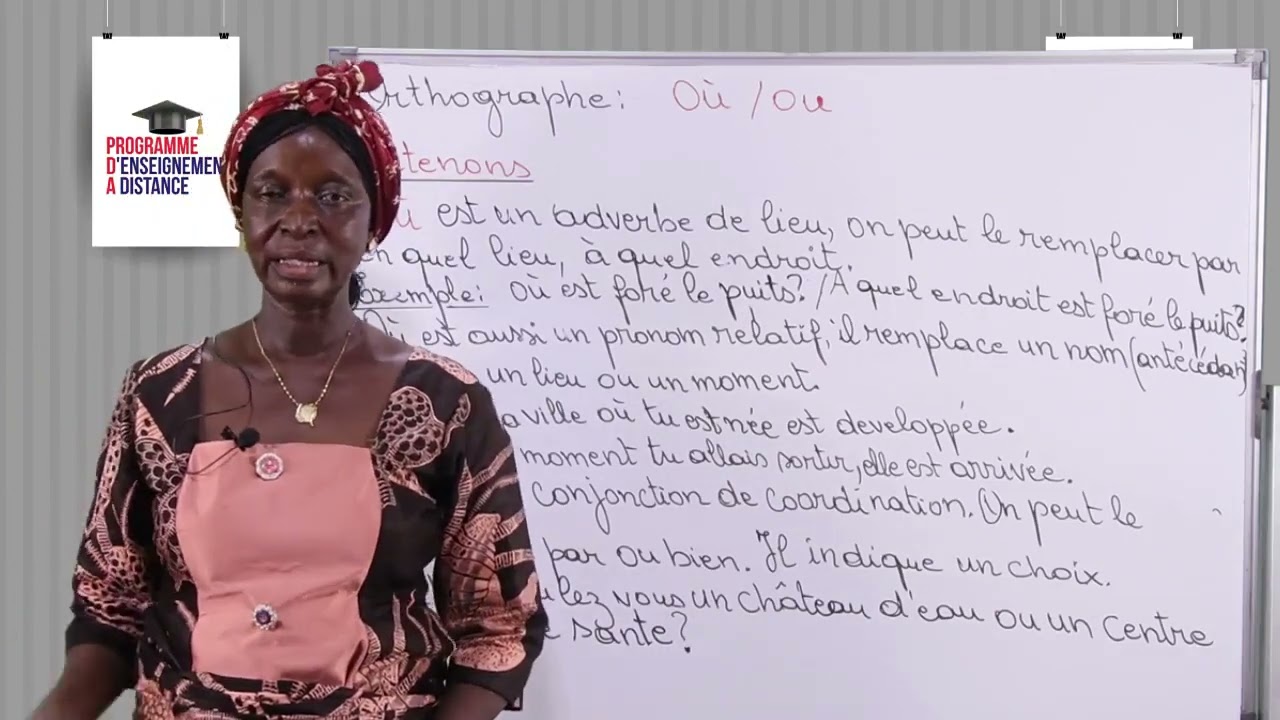 PROGRAMME
D'ENSEIGNEMEN
A DISTANCE
rthographe: Où / Ou
tenons
est un adverbe de lieu, on peut le remplacer par
en quel lieu, à quel endroit.
Exemple: Où est foré le puits? / A quel endroit est foré le puits?
Où est aussi un pronom relatif; il remplace un nom (antécédan)
un lieu ou un moment.
a ville où tu est née est developpée.
moment tu allais sortir, elle est arrivée.
conjonction de coordination. On peut le
par ou bien. Il indique un choix.
ulez vous un château d'eau ou un centre
santé?